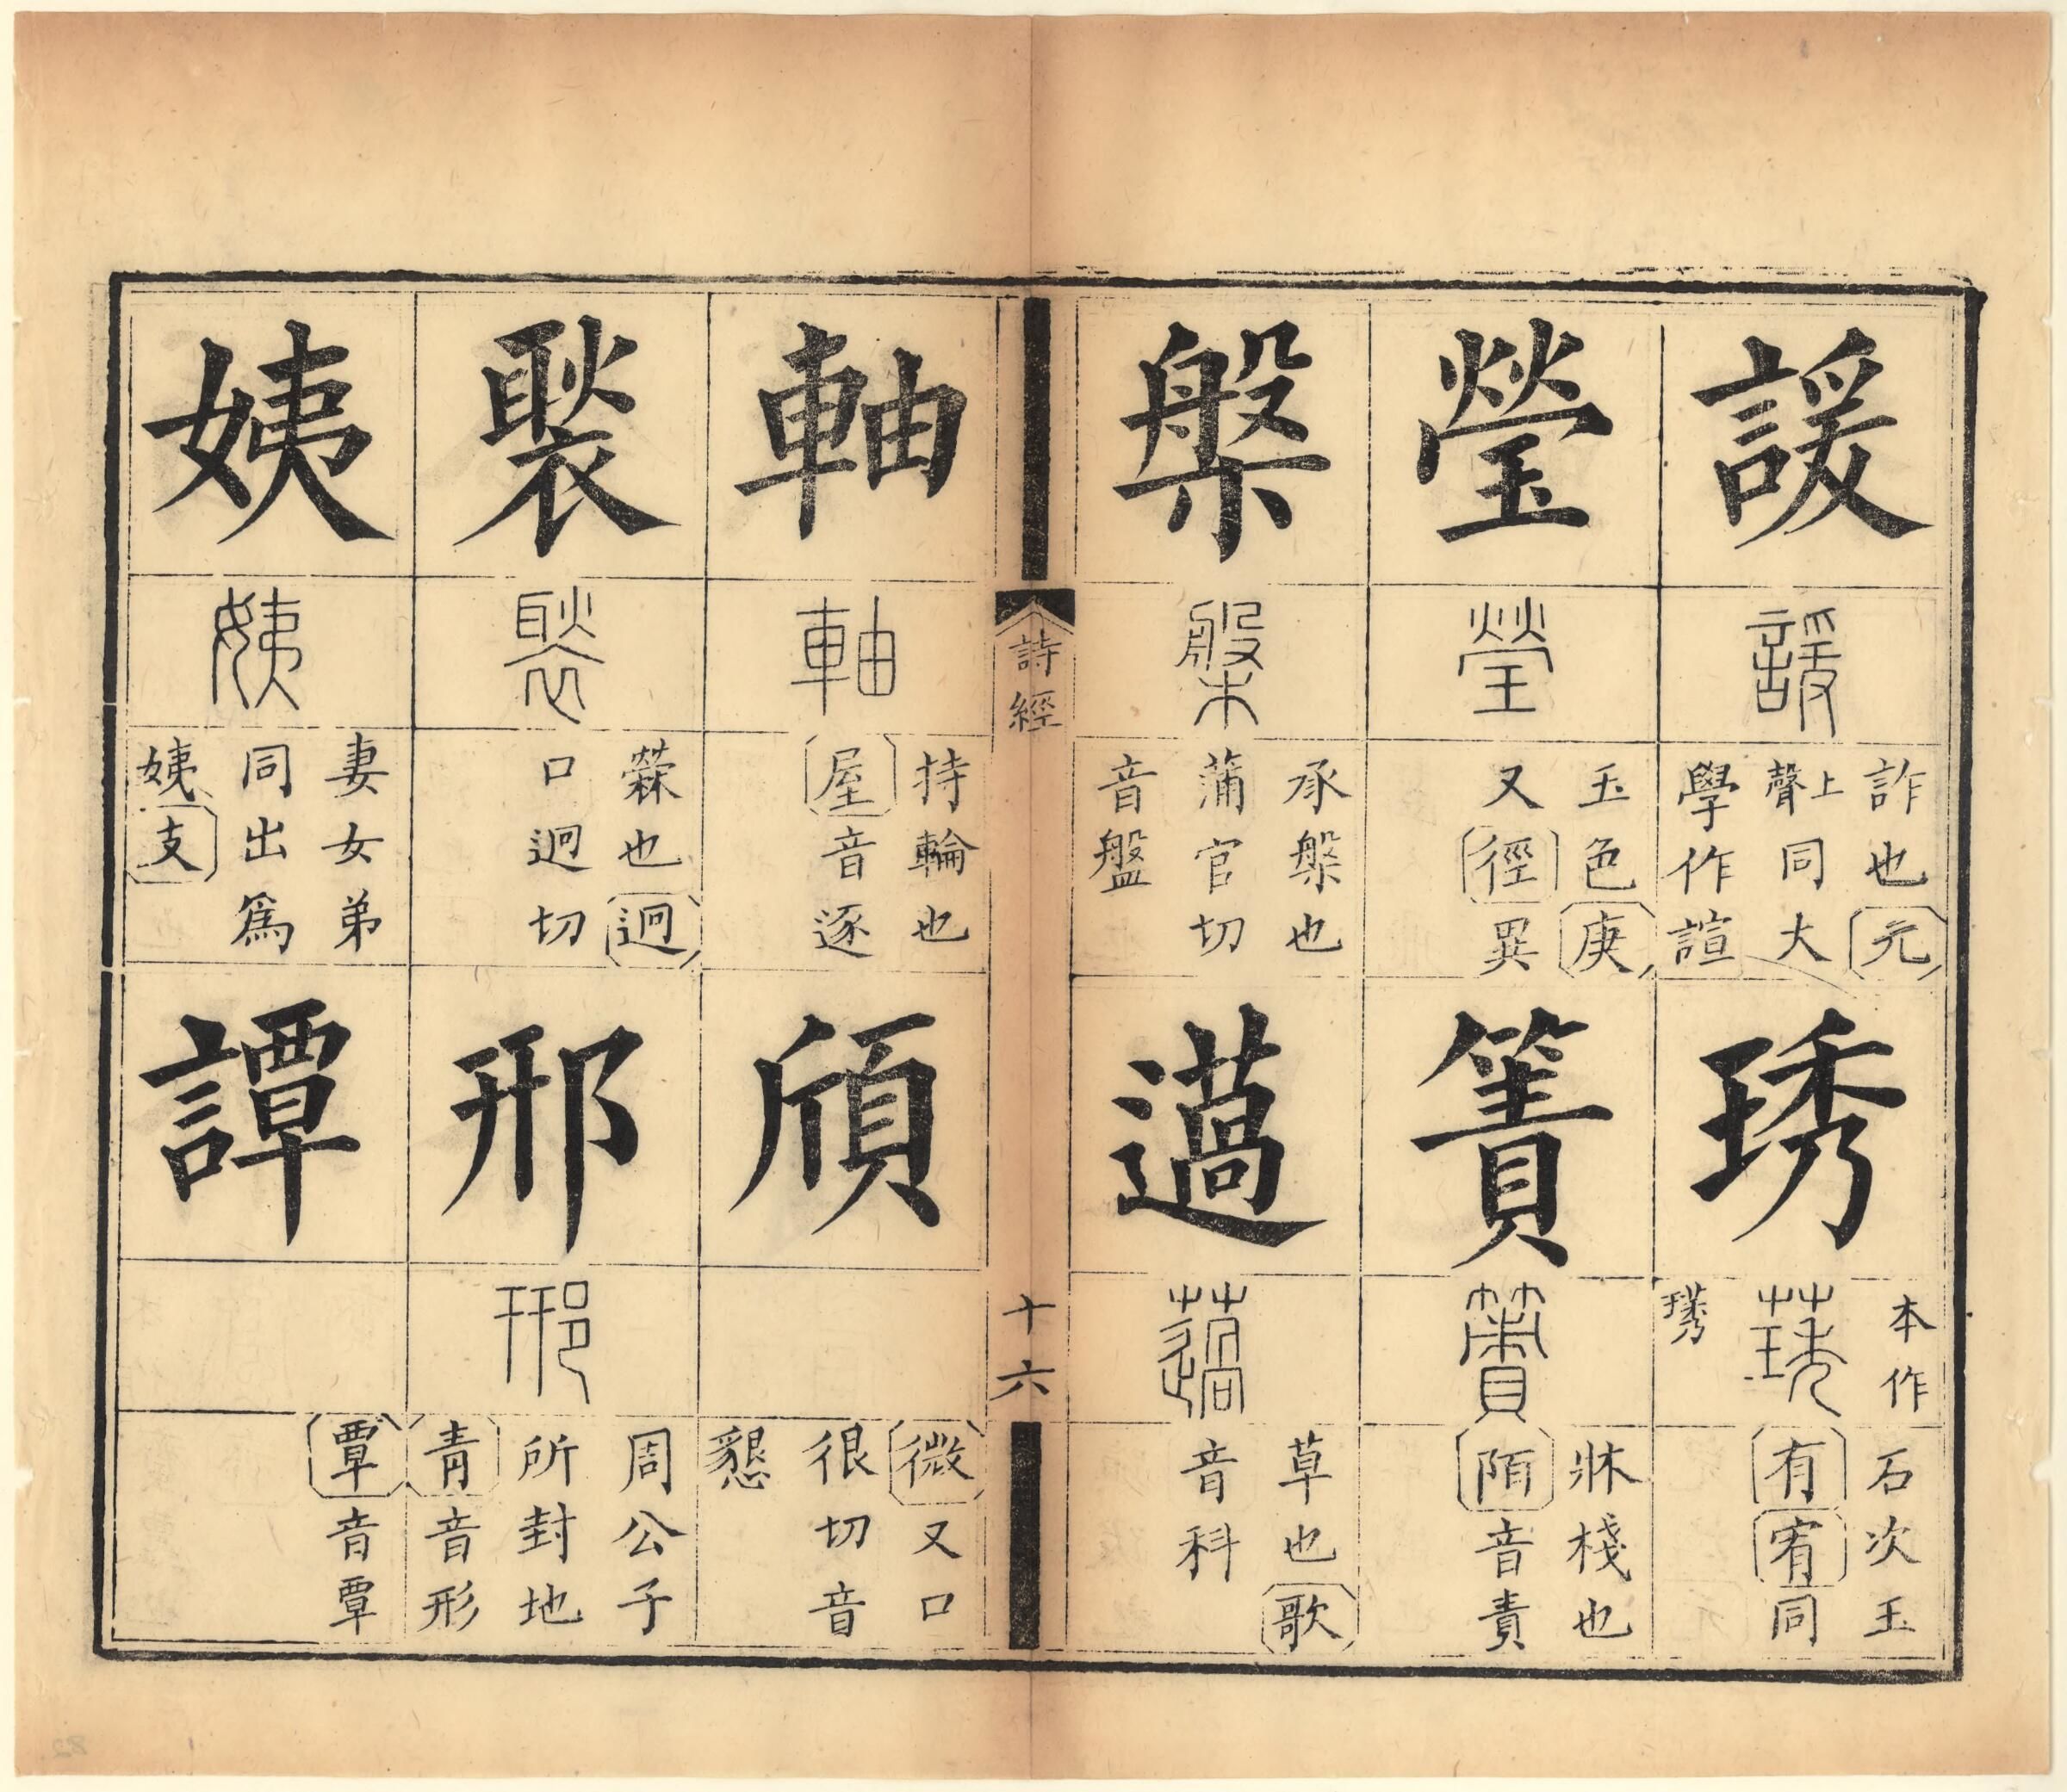 諼
諼
詐也元
上聲同大
學作諠
琇
本作
琇
璓
石次玉
有宥同
瑩
瑩
玉色庚
又徑異
簀
簀
牀棧也
陌音責
槃
槃
承槃也
蒲官切
音盤
薖
薖
草也歌
音科
詩經
十六
軸
軸
持輪也
屋音逐
頎
微又口
很切音
懇
褧
褧
檾也迥
口迥切
邢
邢
周公子
所封地
青音形
姨
姨
妻女弟
同出爲
姨支
譚
覃音覃